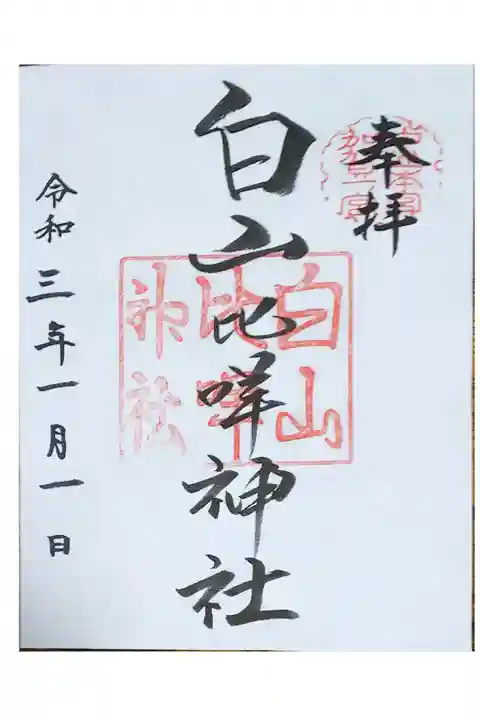 奉拝
白山比咩神社
白山
比咩
神社
令和三年一月一日